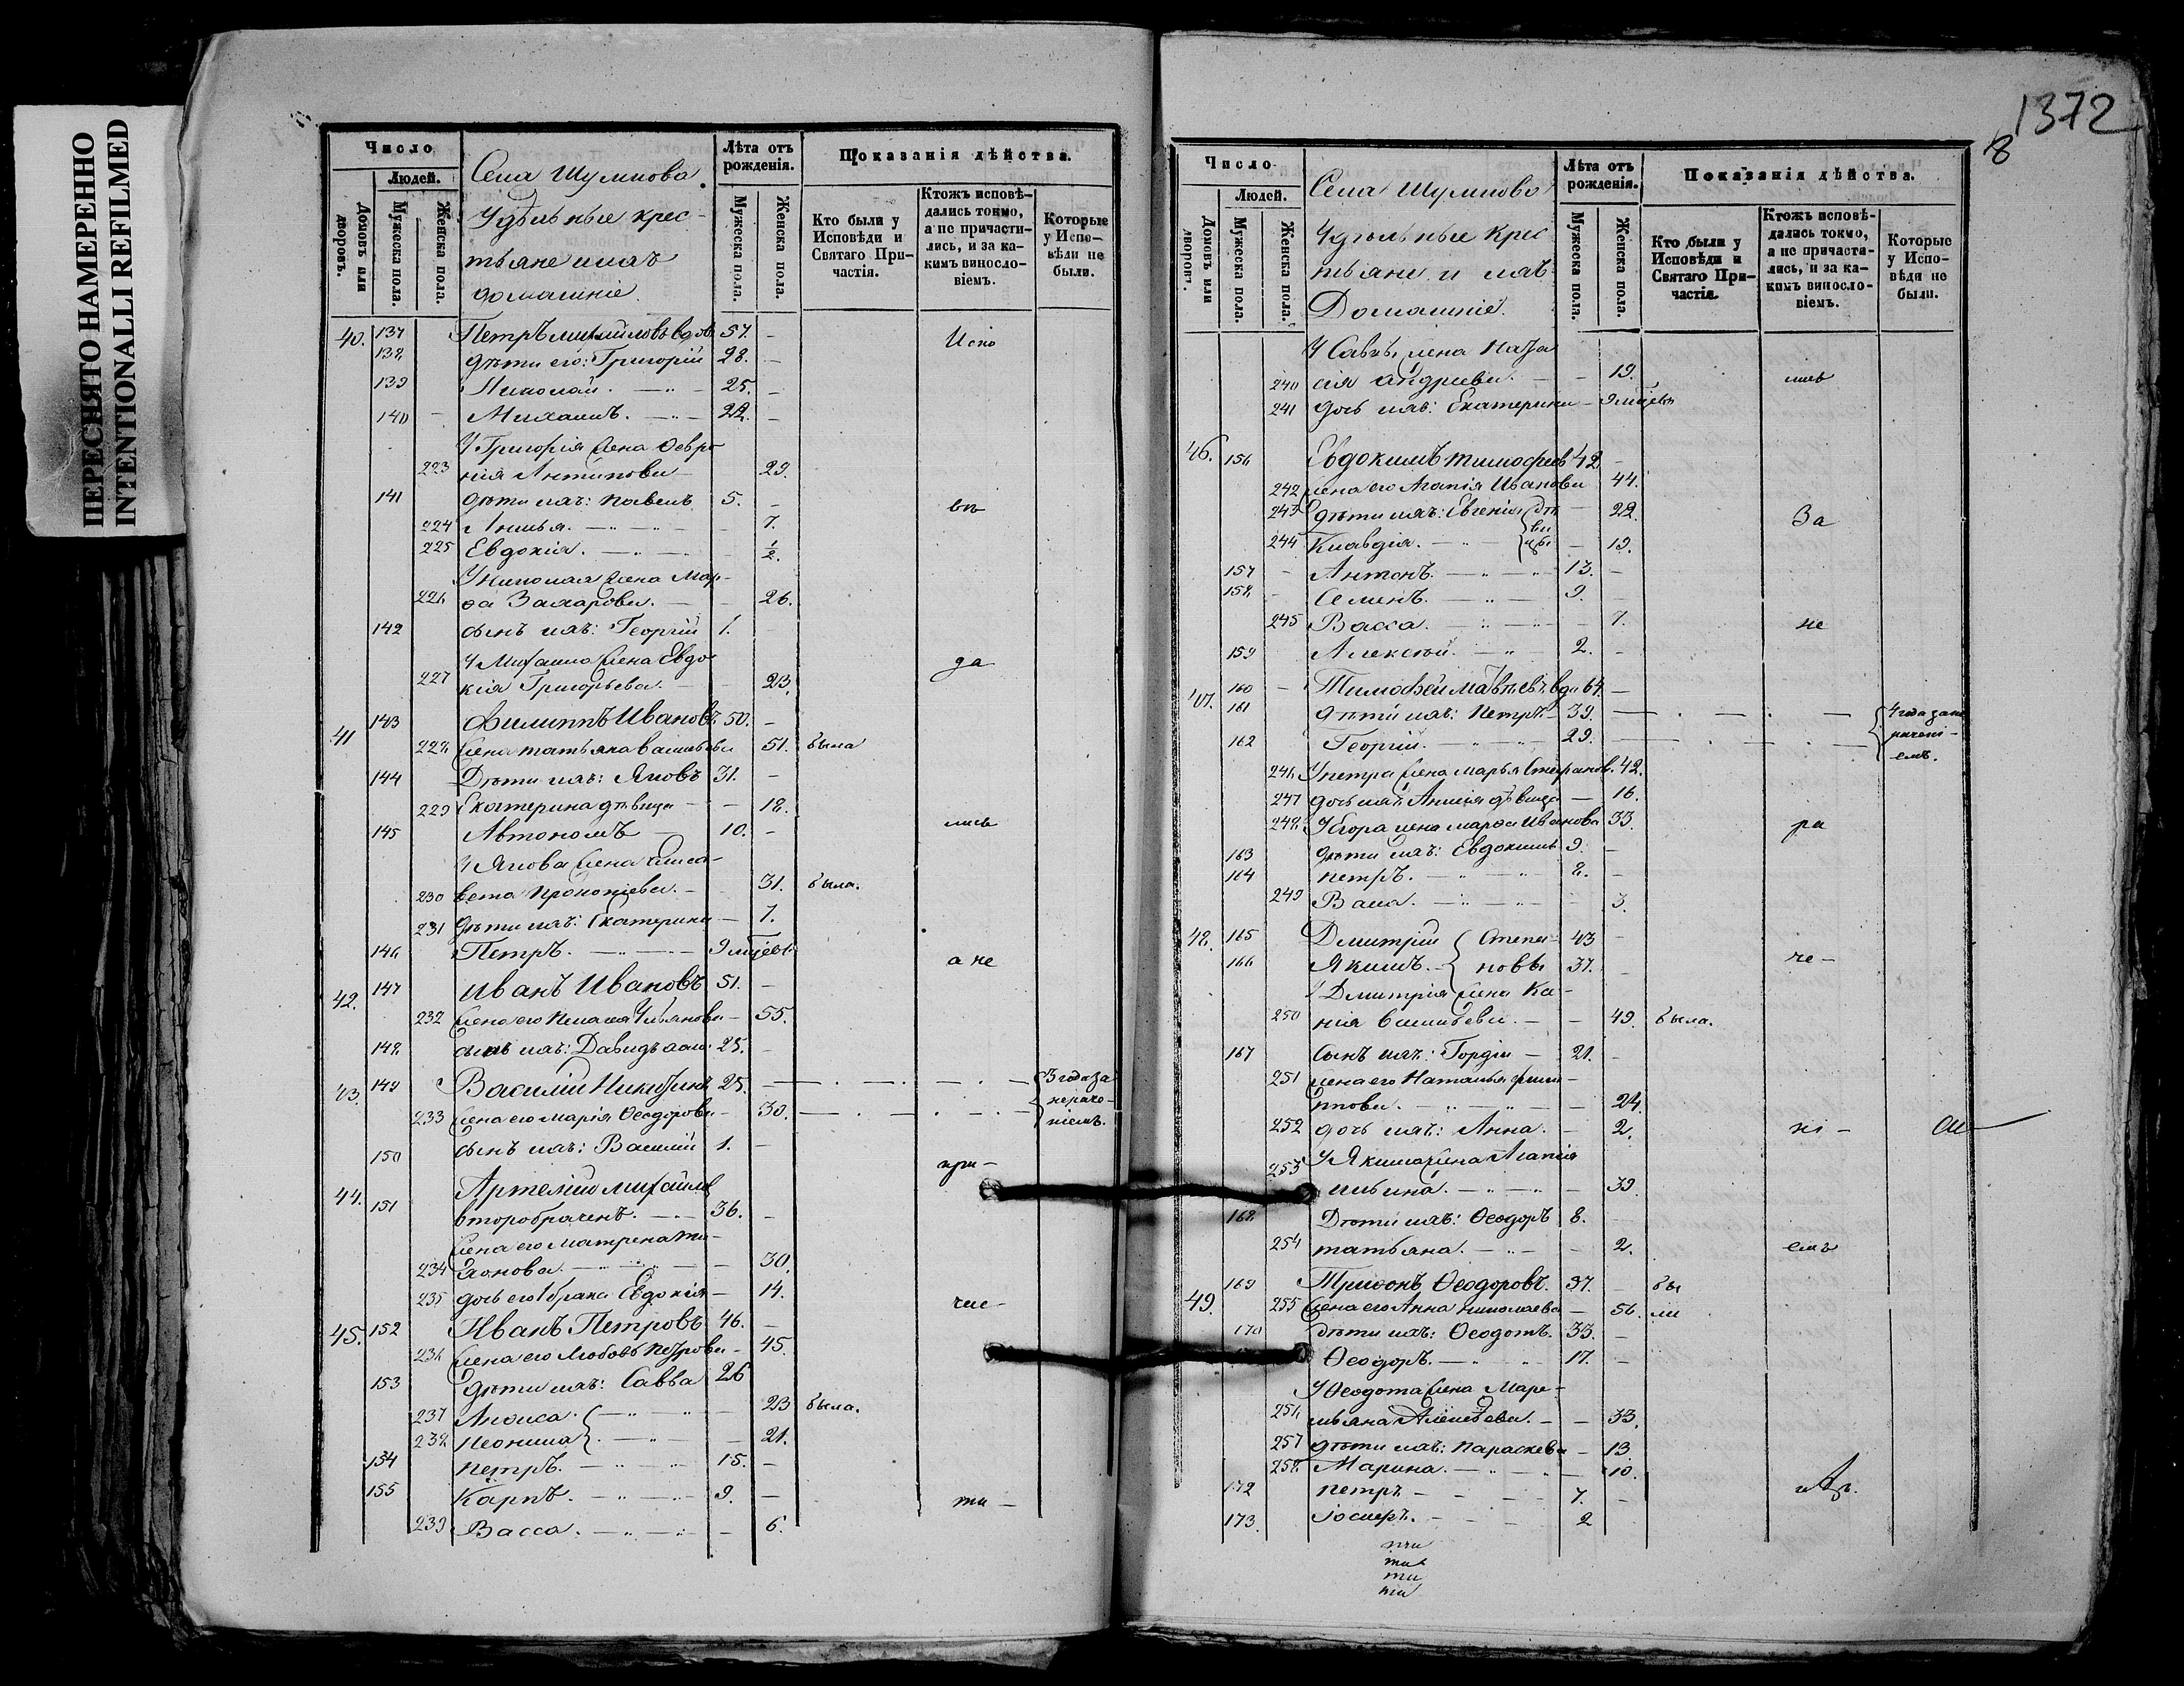 ПЕРЕСНЯТО НАМЕРЕННО
INTENTIONALLI REFILMED
Число
Людей.
Домовъ или дворовъ.
Мужеска пола.
Женска пола.
Села Шумкова.
Удѣльные крес-
тьяне и ихъ
домашніе.
Лѣта отъ рожденія.
Мужеска пола.
Женска пола.
Показанія дѣйства.
Кто были у Исповѣди и Святаго Причастія.
Ктожъ исповѣ-
дались токмо,
а не причасти-
лись, и за ка-
кимъ винosло-
віемъ.
Которые
у Испо-
вѣди не
были.
40. 137 Петръ Михайловъ вдов 57. - Испо
138 дѣти его: Григорій 28. -
139 Николай. 25. -
140 - Михаилъ. 22. -
У Григорія жена Февро
223 нія Антипова 29.
141 дѣти ихъ: Павелъ 5. - вѣ
224 7.
225 Евдокія. 1/2.
У Николая жена Мар-
226 ѳа Захарова. 26.
142 сынъ ихъ: Георгій 1. -
У Михаила жена Евдо
227 кія Григорьева. 23. да
41 143 Филиппъ Ивановъ 50. -
228 жена Татьяна Васильева 51. была
144 Дѣти ихъ: Яковъ 31. -
229 Екатерина дѣвица - 18.
145 Автономъ 10. - лись
У Якова жена Елиса-
230 вета Прокопіева. 31. была.
231 дѣти ихъ: Екатерина - 7.
146 Петръ. 9 мѣсецъ а не
42. 147 Иванъ Ивановъ 51. -
232 жена его Пелагея Ульянова - 55.
148 сынъ ихъ: Давидъ 25. -
43. 149 Василій Никитинъ 25. 3 года за
233 жена его Марія Ѳеодорова - 30. нераче-
ніемъ.
150 сынъ ихъ: Василій 1. - при-
44. 151 Артемій Михайлов
второбраченъ. 36. -
жена его Матрена
234 30.
235 дочь его 1 брака Евдокія - 14. час-
45. 152 Иванъ Петровъ 46. -
236 жена его Любовь Петрова - 45.
153 дѣти ихъ: Савва 26
237 Анфиса. 23 была.
238 Леонила 21.
154 Петръ. 15. -
155 Карпъ. 9. - ти -
239 Васса. - 6.
1372
8
Число
Людей.
Домовъ или дворовъ.
Мужеска пола.
Женска пола.
Села Шумково
Удѣльные крес
тьяне и ихъ
Домашніе.
Лѣта отъ рожденія.
Мужеска пола.
Женска пола.
Показанія дѣйства.
Кто были у
Исповѣди и
Святаго При-
частія.
Ктожъ исповѣ-
дались токмо,
а не причасти-
лись, и за ка-
кимъ виносло-
віемъ.
Которые
у Испо-
вѣди не
были.
У Саввы жена
240 сія Андреева. - 19. лись
241 дочь ихъ: Екатерина - 9 мѣсецъ
46. 156 Евдокимъ Тимофеев 42 -
242 жена его Агапія Иванова 44.
243 дѣти ихъ: Евгенія дѣ 22. За
ви
244 Клавдія. цы - 19.
157 - Антонъ. 13. -
158 - Семенъ. 9. -
245 Васса. - 7. не
159 Алексѣй. 2. -
47. 160 - Тимофей Матвѣевъ вдо 64. -
161 дѣти ихъ: Петръ 39. 4 года за не
162 Георгій. 29. рачені-
емъ.
246 У Петра жена Марья Стефанов. 42.
247 дочь ихъ дѣвица 16.
248 У Егора жена Марѳа Иванова 33. ра
163 дѣти ихъ: Евдокимъ 9. -
164 Петръ. 8. -
249 Васса. 3.
48. 165 Дмитрій Степа- 43 -
166 Якимъ. новы 37. - че -
У Дмитрія жена Ка-
250 нія Васильева. - - 49. была.
167 Сынъ ихъ: Гордій - 21. -
251 жена его Наталья Фили-
ппова. - 24.
252 дочь ихъ: Анна. - 2. ні -
253 У Якима жена Агапія
Ильина. - 39.
168 Дѣти ихъ: Ѳеодоръ 8. -
254 Татьяна. - 2. емъ
49. 169 Трифонъ Ѳеодоровъ. 37. - бы
255 жена его Анна Николаева - 56. ли
170 дѣти ихъ: Ѳеодотъ. 33. -
Ѳеодоръ. 17. -
У Ѳеодота жена Маре-
256 мьяна Алексѣева. - - 33.
257 дѣти ихъ: Параскева - 13
258 Марина. - 10.
172 Петръ - 7. -
173. Іосифъ. 2